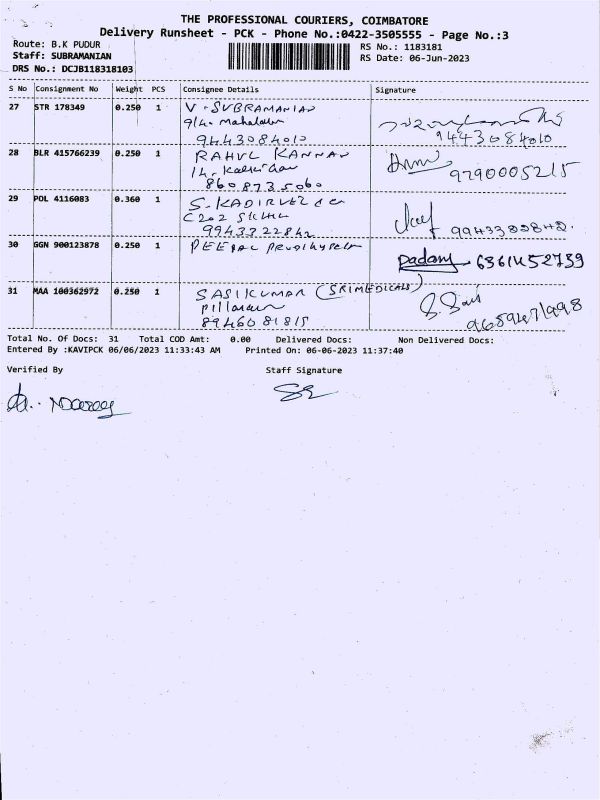 THE PROFESSIONAL COURIERS, COIMBATORE
Delivery Runsheet - PCK - Phone No.:0422-3505555 - Page No.:3
Route: B.K PUDUR
RS No.: 1183181
Staff: SUBRAMANIAN
RS Date: 06-Jun-2023
DRS No.: DCJB118318103
S No Consignment No Weight PCS Consignee Details Signature
27 STR 178349 0.250 1 V. SUBRAMANIAN
9443084010
9443084010
28 BLR 415766239 0.250 1 RAHUL KANNAN
8608735060
9790005215
29 POL 4116083 0.360 1 S. KADIRVEL
C202
9943322842
30 GGN 900123878 0.250 1
Padany 6361452739
31 MAA 100362972 0.250 1 SASIKUMAR (SRIMEDICALS)
8946081815
9659471998
Total No. Of Docs: 31 Total COD Amt: 0.00 Delivered Docs: Non Delivered Docs:
Entered By :KAVIPCK 06/06/2023 11:33:43 AM Printed On: 06-06-2023 11:37:40
Verified By Staff Signature